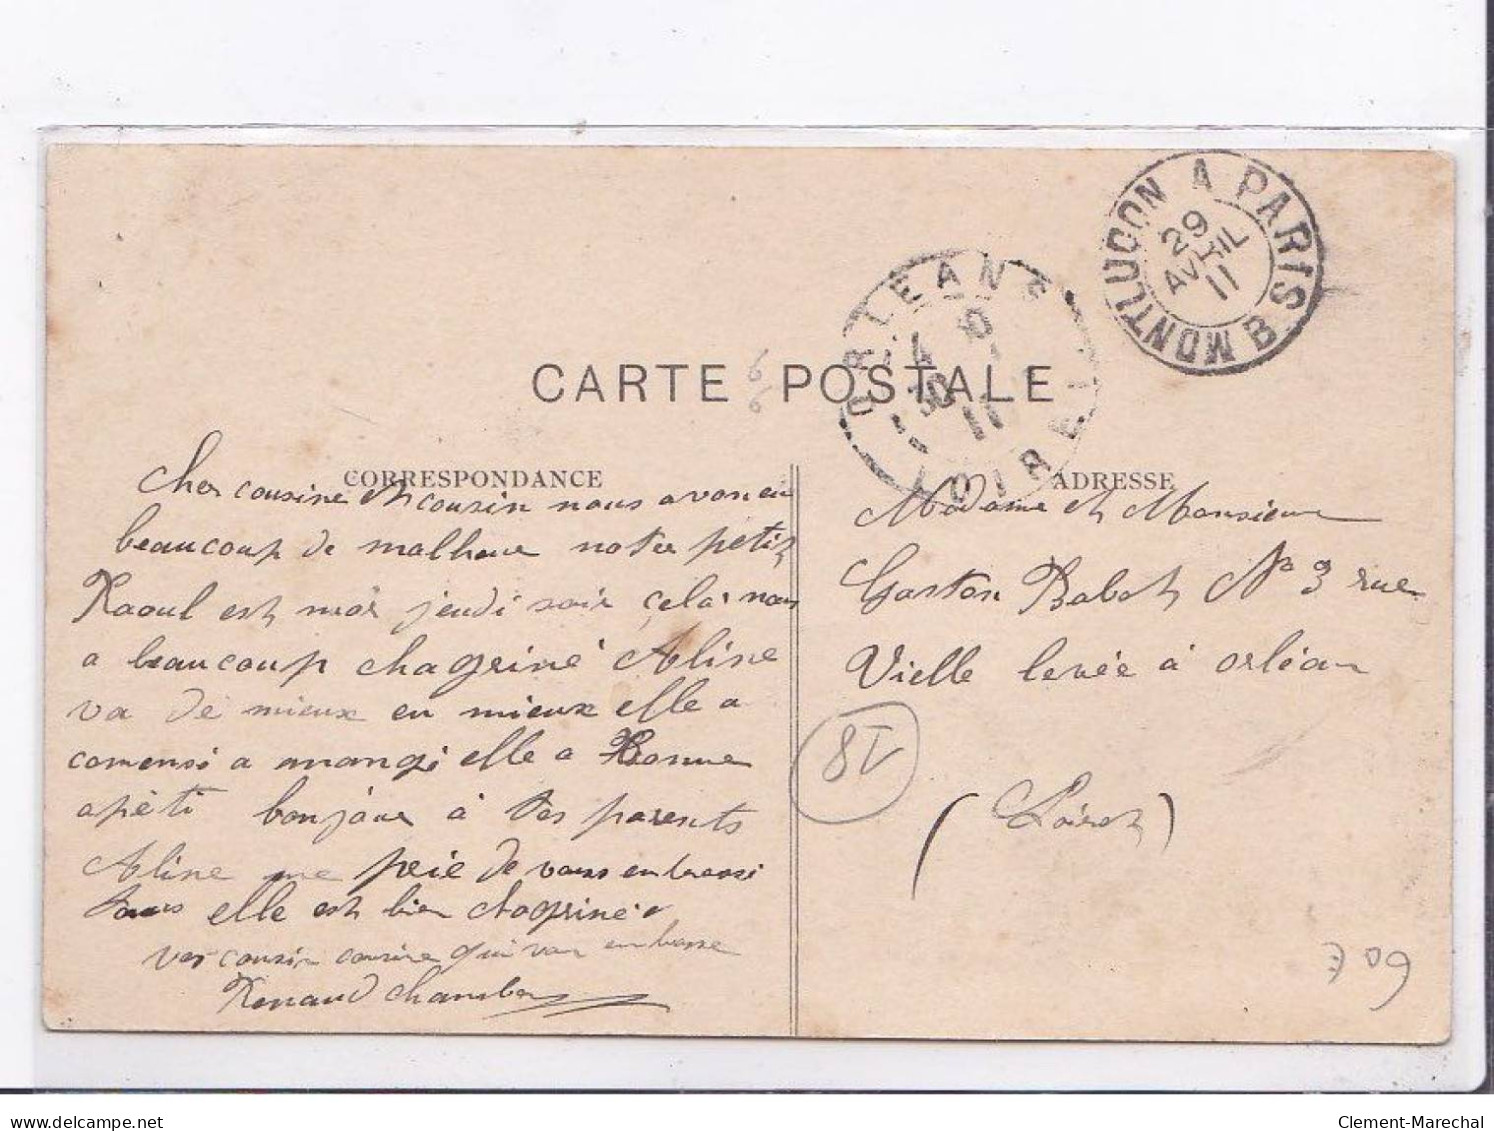 MONTLUCON A PARIS B
29
AVRIL
11
ORLEANS
LOIRET
30
11
CARTE POSTALE
66
CORRESPONDANCE
Cher cousine et cousin nous avon eu
beaucoup de malheur notre petit
Raoul est mor jeudi soir çela nous
a beaucoup chagriné Aline
va de mieux en mieux elle a
comensi a mangi elle a Bonne
apéti bonjour à tes parents
Aline me prie de vous embrassi
tous elle est bien chagriné
vos cousin cousine qui vou embrasse
Renaud
ADRESSE
Madame et Monsieur
Gaston Rabot No 3 rue
Vielle levée à orléan
(Loiret)
81
709
delcampe.net
Clement-Marechal